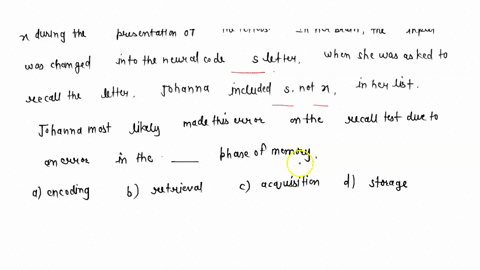 x during the presentation of the letters in her brain, the input
was changed into the neural code s letter. when she was asked to
recall the letter. Johanna included s. not x, in her list.
Johanna most likely made this error on the recall test due to
an error in the ___ phase of memory.
a) encoding b) retrieval c) acquisition d) storage